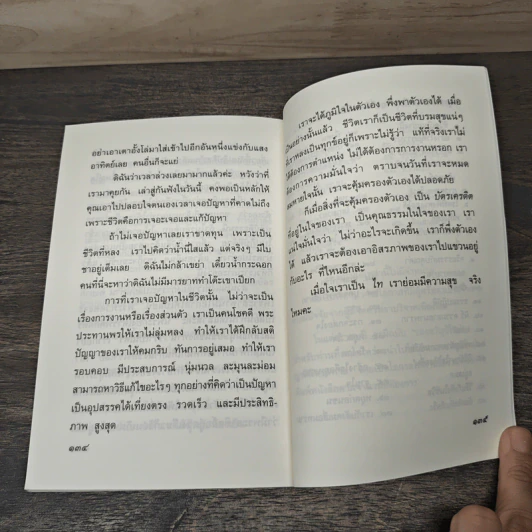 อย่าเอาเตาอั้งโล่มาใส่เข้าไปอีกอันหนึ่งแข่งกับแสง
อาทิตย์เลย คนอื่นก็จะแย่
ดิฉันว่าเวลาล่วงเลยมามากแล้วค่ะ หวังว่าที่
เรามาคุยกัน เล่าสู่กันฟังในวันนี้ คงพอเป็นหลักให้
คุณเอาไปปลอบใจตนเองเวลาเจอปัญหาที่คาดไม่ถึง
เพราะชีวิตคือการเจอะเจอและแก้ปัญหา
ถ้าไม่เจอปัญหาเลยเราขาดทุน เพราะเป็น
ชีวิตที่หลง เราไปคิดว่าน้ำนี่ใสแล้ว แต่จริงๆ มีใบ
ชาอยู่เต็มเลย ดิฉันไม่กล้าเขย่า เดี๋ยวน้ำกระฉอก
คนที่นี่จะหาว่าดิฉันไม่มีมารยาททำโต๊ะเขาเปียก
การที่เราเจอปัญหาในชีวิตนั้น ไม่ว่าจะเป็น
เรื่องการงานหรือเรื่องส่วนตัว เราเป็นคนโชคดี พระ
ประทานพรให้เราไม่ลุ่มหลง ทำให้เราได้ฝึกลับสติ
ปัญญาของเราให้คมกริบ ทันการอยู่เสมอ ทำให้เรา
รอบคอบ มีประสบการณ์ นุ่มนวล ละมุนละม่อม
สามารถหาวิธีแก้ไขอะไรๆ ทุกอย่างที่คิดว่าเป็นปัญหา
เป็นอุปสรรคได้เที่ยงตรง รวดเร็ว และมีประสิทธิ-
ภาพ สูงสุด
๑๓๔
เราจะได้ภูมิใจในตัวเอง พึ่งพาตัวเองได้ เมื่อ
เป็นอย่างนั้นแล้ว ชีวิตเราก็เป็นชีวิตที่บรมสุขแน่ๆ
ที่เราหลงเป็นทุกข์อยู่ก็เพราะไม่รู้ว่า แท้ที่จริงเราไม่
ได้ต้องการตำแหน่ง ไม่ได้ต้องการการงานหรอก เรา
ต้องการความมั่นใจว่า ตราบจนวันที่เราจะหมด
ลมหายใจนั้น เราจะคุ้มครองตัวเองได้ปลอดภัย
ก็เมื่อสิ่งที่จะคุ้มครองตัวเอง เป็น บัตรเครดิต
ที่อยู่ในใจของเรา เป็นคุณธรรมในใจของเรา เรา
แน่ใจมั่นใจว่า ไม่ว่าอะไรจะเกิดขึ้น เราก็พึ่งตัวเอง
ได้ แล้วเราจะต้องเอาอิสรภาพของเราไปแขวนอยู่
กับอะไร ที่ไหนอีกล่ะ
เมื่อใจเราเป็น ไท เราย่อมมีความสุข จริง
ไหมคะ
๑๓๕